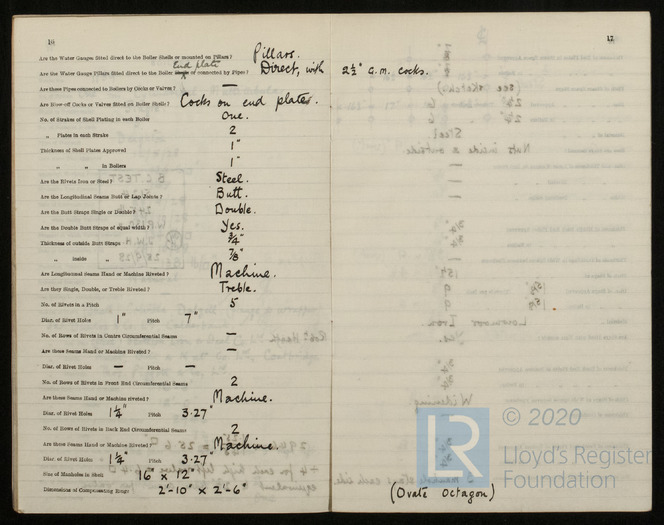 16
17
Are the Water Gauges fitted direct to the Boiler Shells or mounted on Pillars? Pillars.
Are the Water Gauge Pillars fitted direct to the Boiler Shells end plate or connected by Pipes? Direct, with 2½" G.M. cocks.
Are these Pipes connected to Boilers by Cocks or Valves? —
Are Blow-off Cocks or Valves fitted on Boiler Shells? Cocks on end plates.
No. of Strakes of Shell Plating in each Boiler One.
„ Plates in each Strake 2
Thickness of Shell Plates Approved 1"
„ „ in Boilers 1"
Are the Rivets Iron or Steel? Steel.
Are the Longitudinal Seams Butt or Lap Joints? Butt.
Are the Butt Straps Single or Double? Double.
Are the Double Butt Straps of equal width? Yes.
Thickness of outside Butt Straps ¾"
„ inside „ ⅞"
Are Longitudinal Seams Hand or Machine Riveted? Machine.
Are they Single, Double, or Treble Riveted? Treble.
No. of Rivets in a Pitch 5
Diar. of Rivet Holes 1" Pitch 7"
No. of Rows of Rivets in Centre Circumferential Seams —
Are these Seams Hand or Machine Riveted? —
Diar. of Rivet Holes — Pitch —
No. of Rows of Rivets in Front End Circumferential Seams 2
Are these Seams Hand or Machine riveted? Machine.
Diar. of Rivet Holes 1¼" Pitch 3.27"
No. of Rows of Rivets in Back End Circumferential Seams 2
Are these Seams Hand or Machine Riveted? Machine.
Diar. of Rivet Holes 1¼" Pitch 3.27"
Size of Manholes in Shell 16" × 12"
Dimensions of Compensating Rings 2'-10" × 2'-6" (Ovate Octagon)
© 2020
LR
Lloyd's Register
Foundation